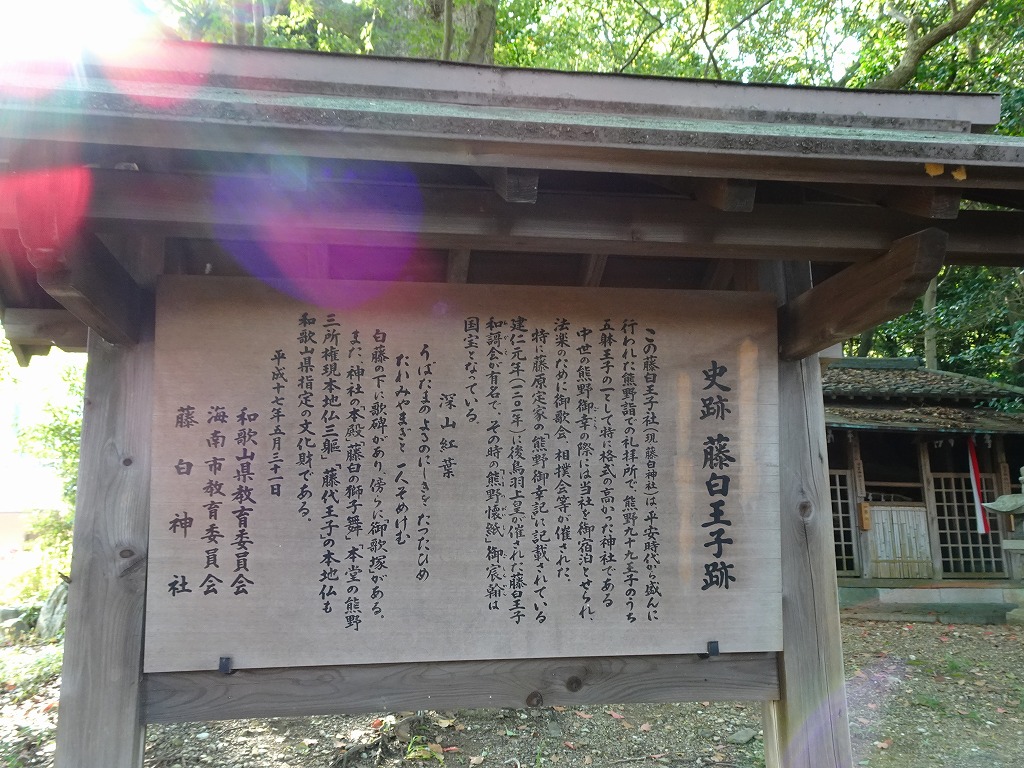 史跡 藤白王子跡
この藤白王子社(現、藤白神社)は平安時代から盛んに
行われた熊野詣での礼拝所で、熊野九十九王子のうち
五躰王子の一として特に格式の高かった神社である
中世の熊野御幸の際には当社を御宿泊させられ、
法楽のために御歌会、相撲会等が催された。
特に藤原定家の「熊野御幸記」に記載されている
建仁元年(一二〇一年)に後鳥羽上皇が催された藤白王子
和謌会が有名で、その時の熊野懐紙(御宸翰)は
国宝となっている。
深山紅葉
うばたまの よるのにしきを たつたひめ
たれみやまぎと 一人そめけむ
白藤の下に歌碑があり、傍らに「御歌塚」がある。
また、神社の本殿、「藤白の獅子舞」、本堂の「熊野
三所権現本地仏三躯」、「藤代王子」の本地仏も
和歌山県指定の文化財である。
平成十七年五月三十一日
和歌山県教育委員会
海南市教育委員会
藤白神社